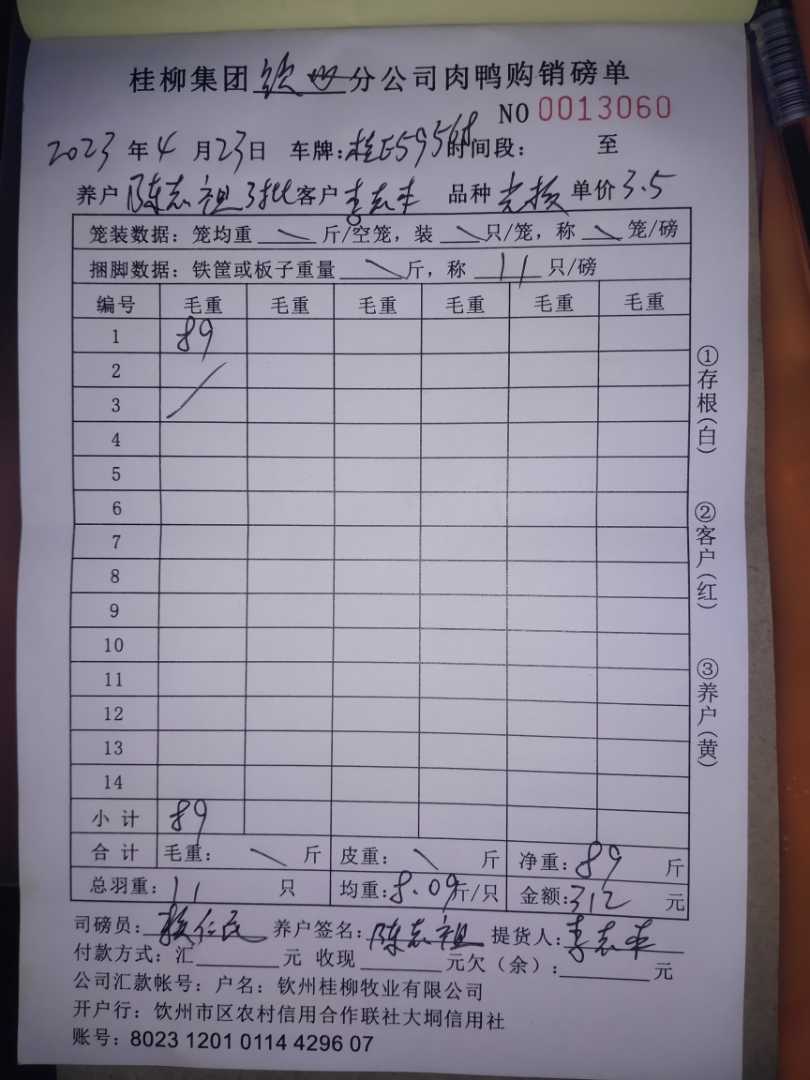 桂柳集团钦州分公司肉鸭购销磅单
NO 0013060
2023年4月23日 车牌:桂E59568 时间段: 至
养户 陈志祖3批 客户 李志丰 品种 光核 单价3.5
笼装数据: 笼均重 \ 斤/空笼, 装 \ 只/笼, 称 \ 笼/磅
捆脚数据: 铁筐或板子重量 \ 斤, 称 11 只/磅
编号 毛重 毛重 毛重 毛重 毛重 毛重
1 89
2
3
4
5
6
7
8
9
10
11
12
13
14
小计 89
合计 毛重: \ 斤 皮重: \ 斤 净重: 89 斤
总羽重: 11 只 均重: 8.09斤/只 金额: 312 元
司磅员: 仁民 养户签名: 陈志祖 提货人: 李志丰
付款方式: 汇 元 收现 元欠(余): 元
公司汇款帐号: 户名: 钦州桂柳牧业有限公司
开户行: 钦州市区农村信用合作联社大垌信用社
账号: 8023 1201 0114 4296 07
①存根(白)
②客户(红)
③养户(黄)